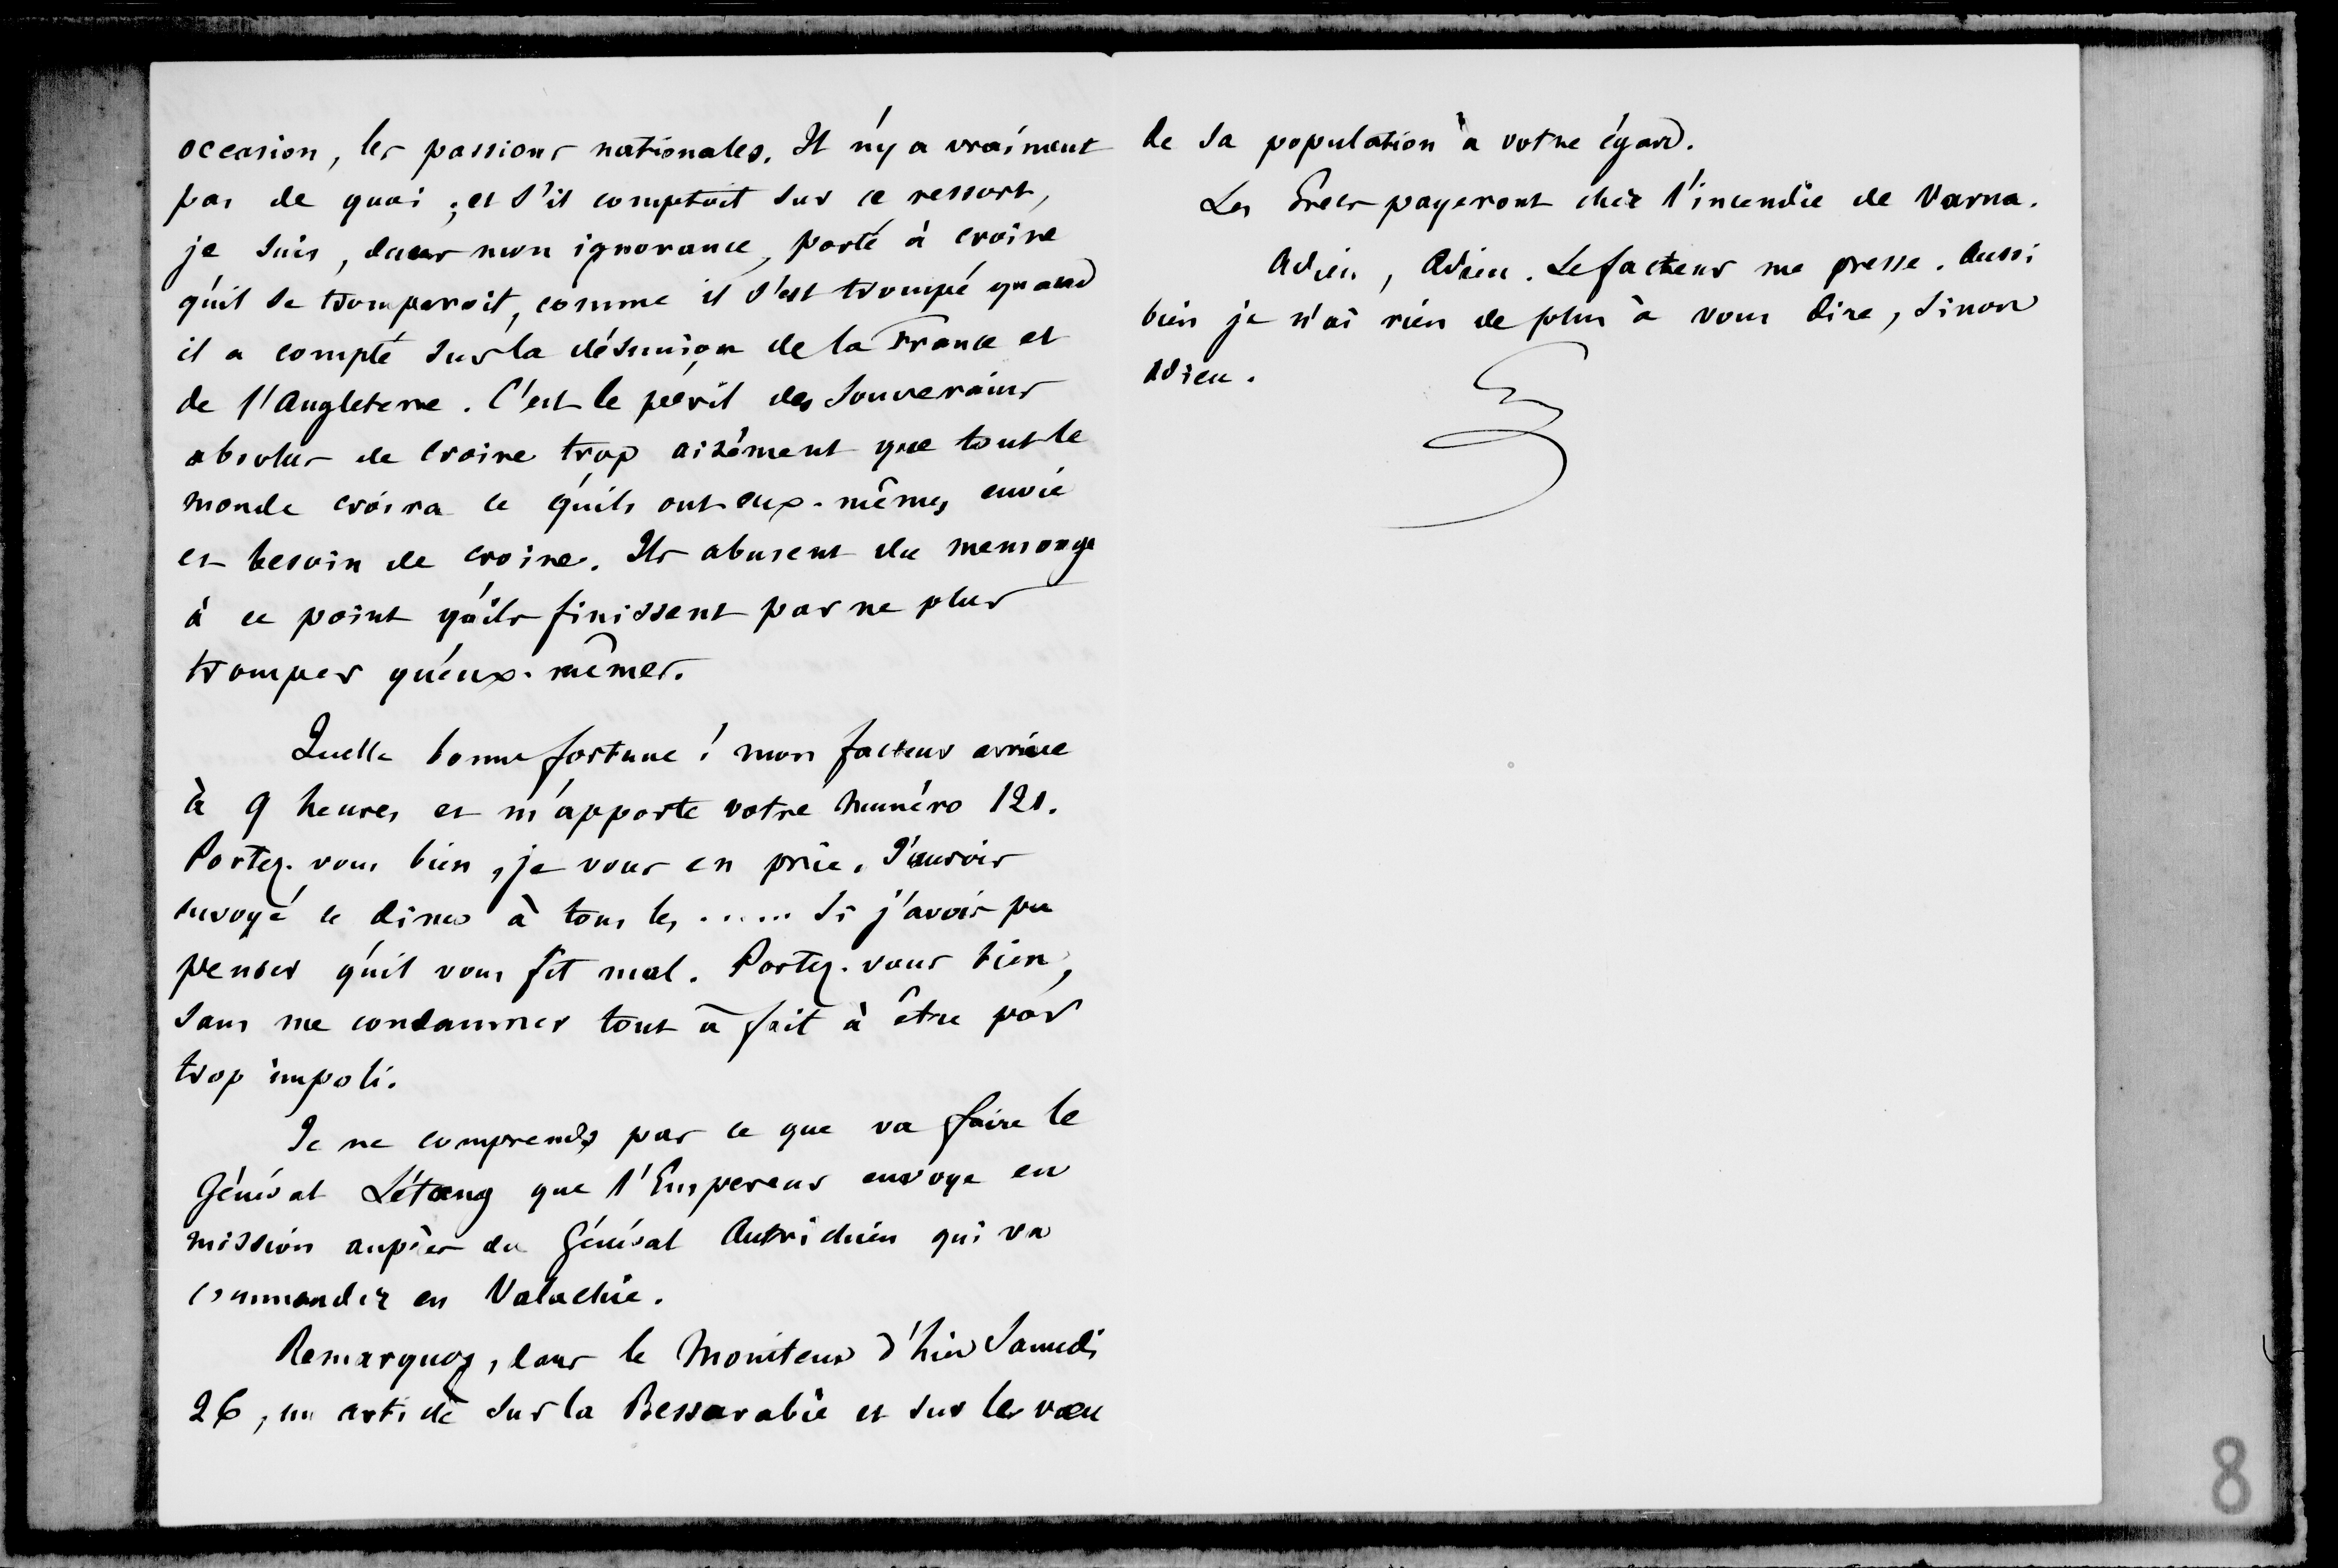 occasion, les passions nationales. Il n'y a vraiment
pas de quoi ; et s'il comptoit sur ce ressort,
je suis, dans mon ignorance, porté à croire
qu'il se tromperoit, comme il s'est trompé quand
il a compté sur la désunion de la France et
de l'Angleterre. C'est le péril des Souverains
absolus de croire trop aisément que tout le
monde croira ce qu'ils ont eux-mêmes envie
et besoin de croire. Ils abusent du mensonge
à ce point qu'ils finissent par ne plus
tromper qu'eux-mêmes.
Quelle bonne fortune ! mon facteur arrive
à 9 heures et m'apporte votre numéro 121.
Portez-vous bien, je vous en prie. J'aurois
envoyé ce diner à tous les ...... si j'avois pu
penser qu'il vous fit mal. Portez-vous bien,
sans me condamner tout à fait à être par
trop impoli.
Je ne comprends pas ce que va faire le
Général Létang que l'Empereur envoye en
mission auprès du Général Autrichien qui va
commander en Valachie.
Remarquez, dans le Moniteur d'hier Samedi
26, un article sur la Bessarabie et sur les vœu
de sa population à votre égard.
Les Grecs payeront cher l'incendie de Varna.
Adieu, Adieu. Le facteur me presse. Aussi
bien je n'ai rien de plus à vous dire, sinon
adieu.
8